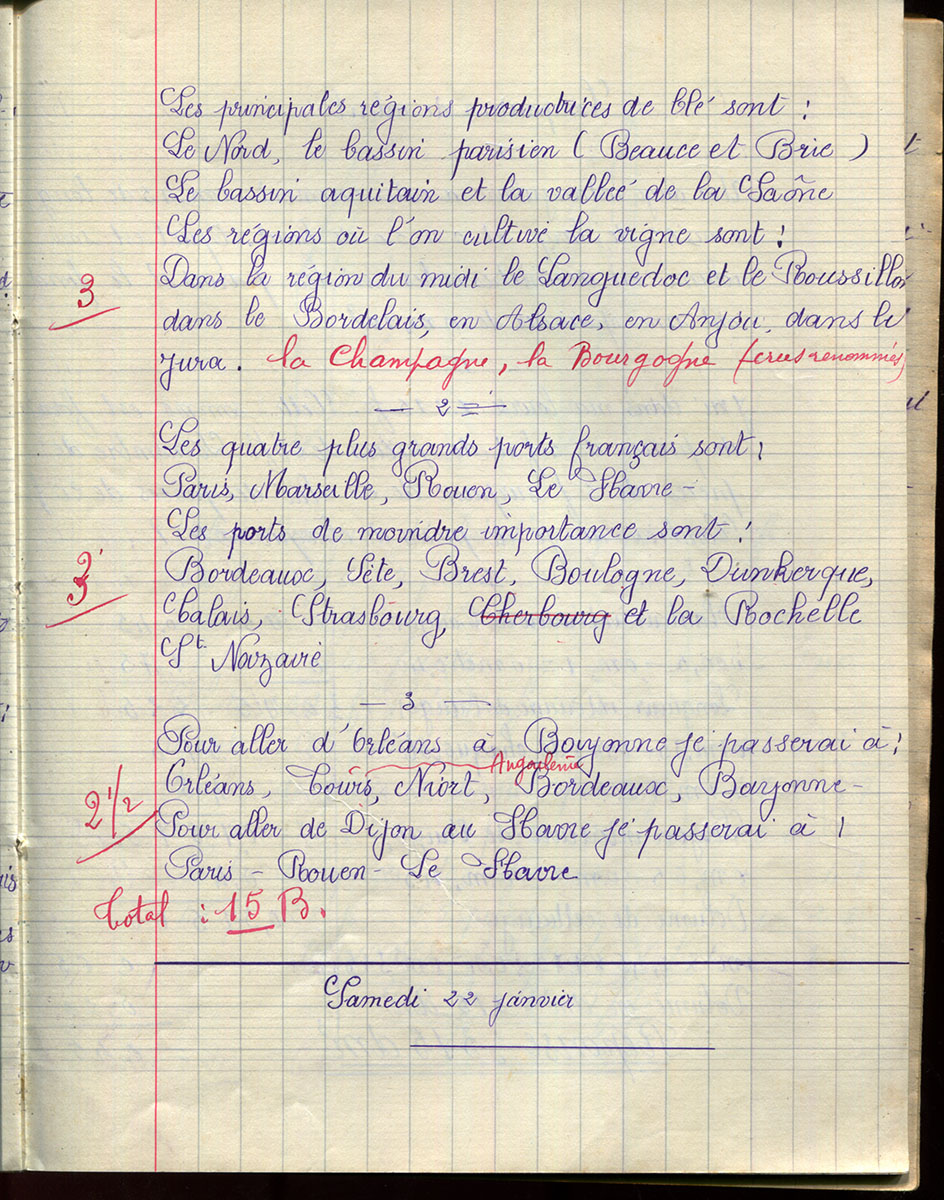 Les principales régions productrices de blé sont :
Le Nord, le bassin parisien ( Beauce et Brie )
Le bassin aquitain et la vallée de la Saône
Les régions où l'on cultive la vigne sont :
Dans la région du midi le Languedoc et le Roussillon
3
dans le Bordelais, en Alsace, en Anjou, dans le
jura. la Champagne, la Bourgogne (crus renommés)
— 2 —
Les quatre plus grands ports français sont :
Paris, Marseille, Rouen, Le Havre -
Les ports de moindre importance sont :
Bordeaux, Sète, Brest, Boulogne, Dunkerque,
3
Calais, Strasbourg, Cherbourg et la Rochelle
St Nazaire
— 3 —
Pour aller d'Orléans à Bayonne je passerai à :
Angoulème
Orléans, Tours, Niort, Bordeaux, Bayonne -
2 1/2
Pour aller de Dijon au Havre je passerai à :
Paris - Rouen - Le Havre
Total : 15 B.
Samedi 22 janvier